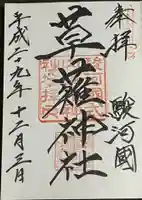 奉拝
駿河國
草薙神社
平成二十九年十二月三日